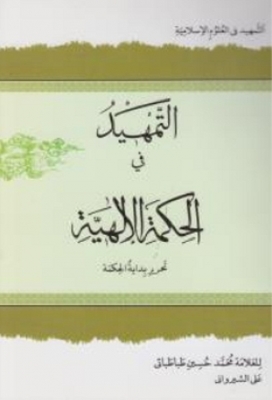 التمهيد في العلوم الإسلامية
التمهيد
في
الحكمة الإلهية
تحرير بداية الحكمة
للعلامة محمد حسين طباطبائي
علي الشيرواني